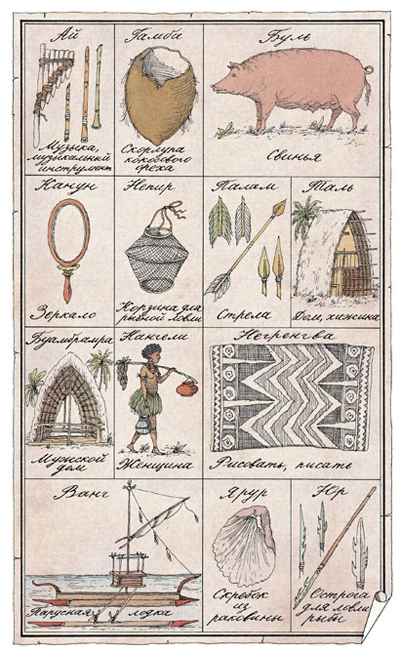 Ай
Музыка,
музыкальный
инструмент
Гамба
Скорлупа
кокосового
ореха
Буль
Свинья
Канун
Зеркало
Непир
Корзина для
рыбной ловли
Палам
Стрела
Таль
Дом, хижина
Буамбрамра
Мужской
дом
Нангели
Женщина
Негренгва
Рисовать, писать
Ванг
Парусная лодка
Ярур
Скребок
из
раковины
Юр
Острога
для ловли
рыбы